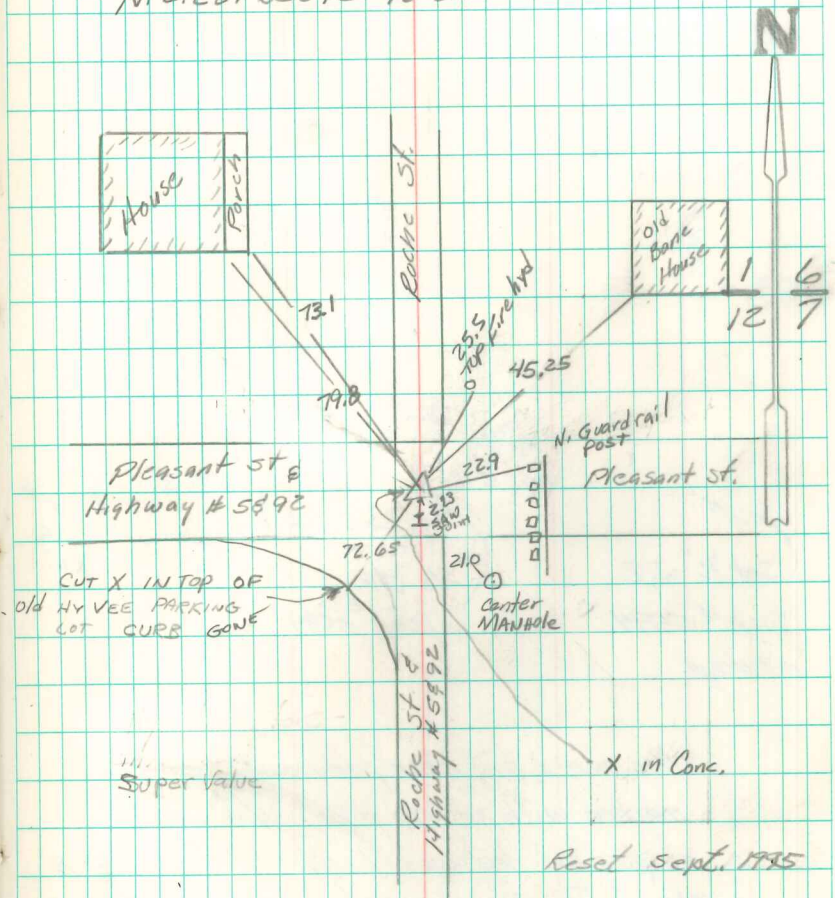 N
House
Porch
Roche St.
Old
Bane
House
1 6
12 7
73.1
25.5
Top fire hyd
45.25
79.8
N. Guardrail
Post
22.9
Pleasant St &
Highway # 5&92
Pleasant St.
2.33
Saw
Joint
72.65
21.0
Center
MANHole
CUT X IN TOP OF
old HY VEE PARKING
LOT CURB GONE
Roche St &
Highway # 5&92
X in Conc.
Super Value
Reset Sept. 1995